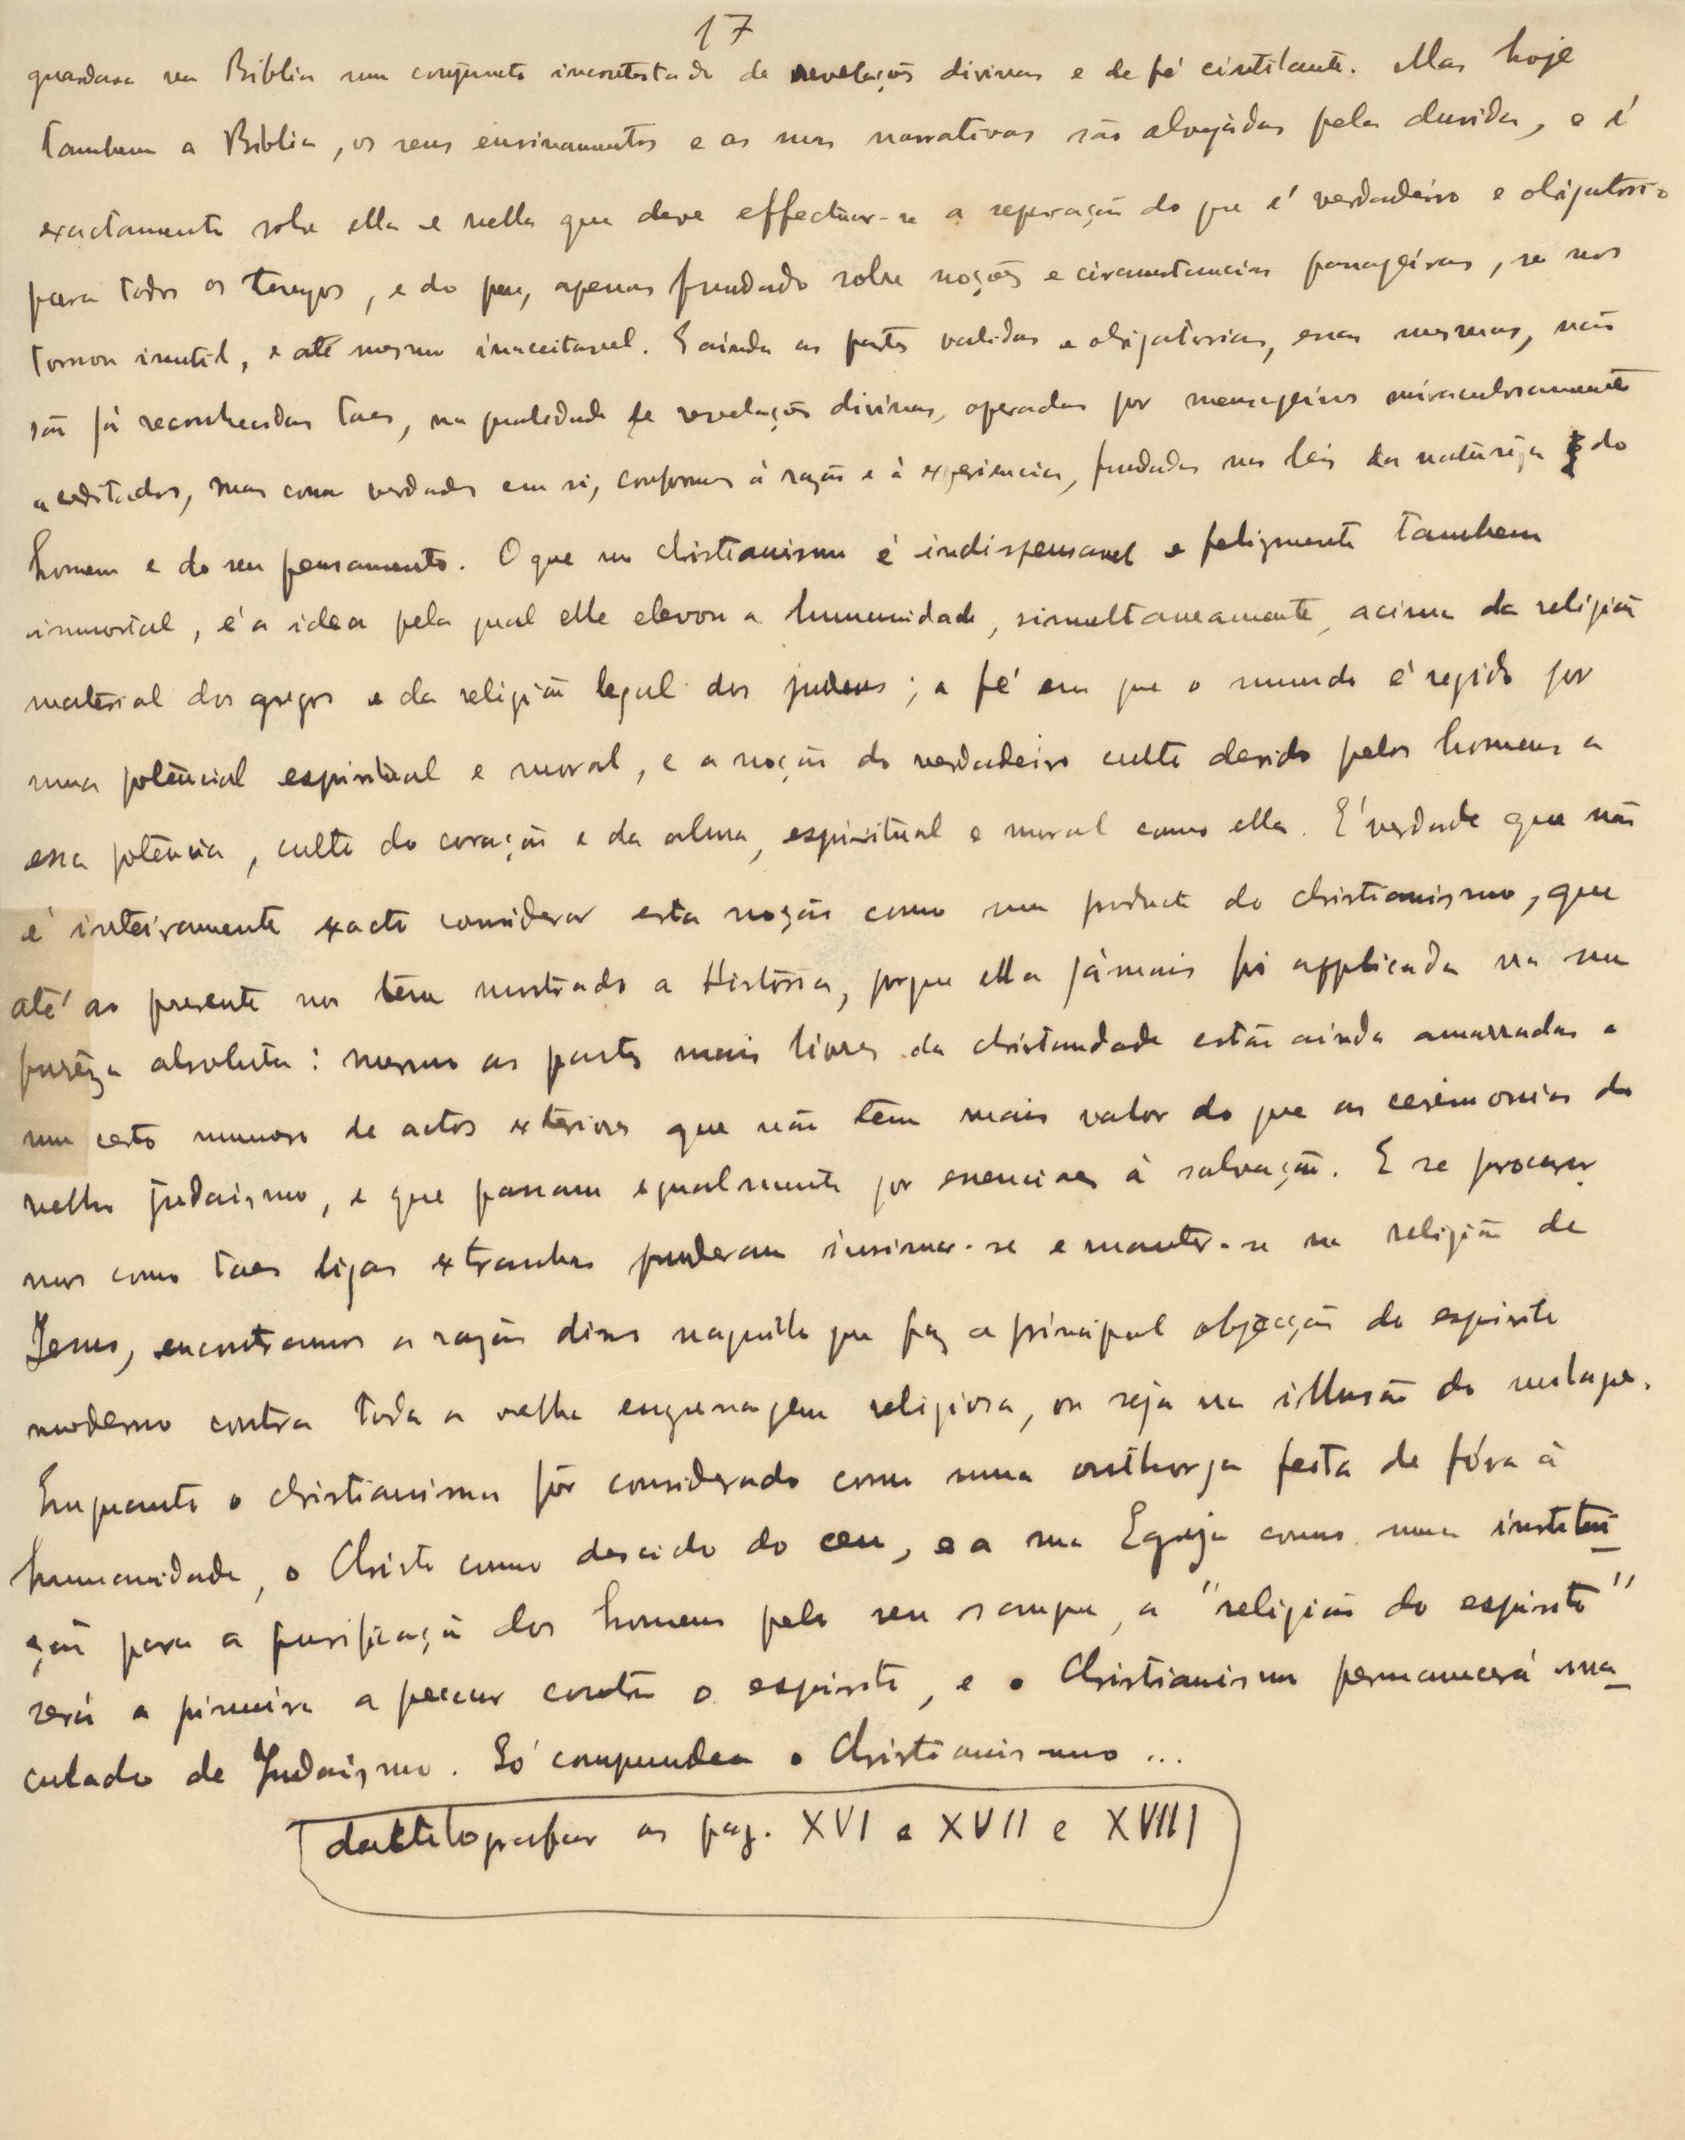 17
guardava na Biblia um conjuncto incontestado de revelações divinas e de fé cintilante. Mas hoje
tambem a Biblia, os seus ensinamentos e as suas narrativas são alvejadas pela duvida, e é
exactamente sobre ella e nella que deve effectuar-se a separação do que é verdadeiro e obrigatorio
para todos os tempos, e do que, apenas fundado sobre noções e circumstancias passageiras, se nos
tornou inutil, e até mesmo inacceitavel. E ainda as partes validas e obrigatorias, essas mesmas, não
são já reconhecidas taes, na qualidade de revelações divinas, operadas por mensageiros miraculosamente
acreditados, mas como verdades em si, conformes á razão e á experiencia, fundadas nas leis da natureza do
homem e do seu pensamento. O que no christianismo é indispensavel e felizmente tambem
immortal, é a idea pela qual elle elevou a humanidade, simultaneamente, acima da religião
material dos gregos e da religião legal dos judeus; a fé em que o mundo é regido por
uma potencial espiritual e moral, e a noção do verdadeiro culto devido pelos homens a
essa potencia, culto do coração e da alma, espiritual e moral como ella. É verdade que não
é inteiramente exacto considerar esta noção como um producto do christianismo, que
até ao presente nos tem mostrado a Historia, porque ella jámais foi applicada na sua
purêza absoluta: mesmo as partes mais livres da christandade estão ainda amarradas a
um certo numero de actos exteriores que não têm mais valor do que as ceremonias do
velho judaismo, e que passam egualmente por essenciaes á salvação. E se procurar-
mos como taes ligas extranhas puderam insinuar-se e manter-se na religião de
Jesus, encontramos a razão disso naquillo que faz a principal objecção do espirito
moderno contra toda a velha engrenagem religiosa, ou seja na illusão do milagre.
Emquanto o christianismo fôr considerado como uma outhorga feita de fóra á
humanidade, o Christo como descido do ceu, e a sua Egreja como uma institui-
ção para a purificação dos homens pelo seu sangue, a "religião do espirito"
será a primeira a peccar contra o espirito, e o Christianismo permanecerá ma-
culado de Judaismo. Só comprendea o Christianismo ...
dactilographar as pag. XVI e XVII e XVIII